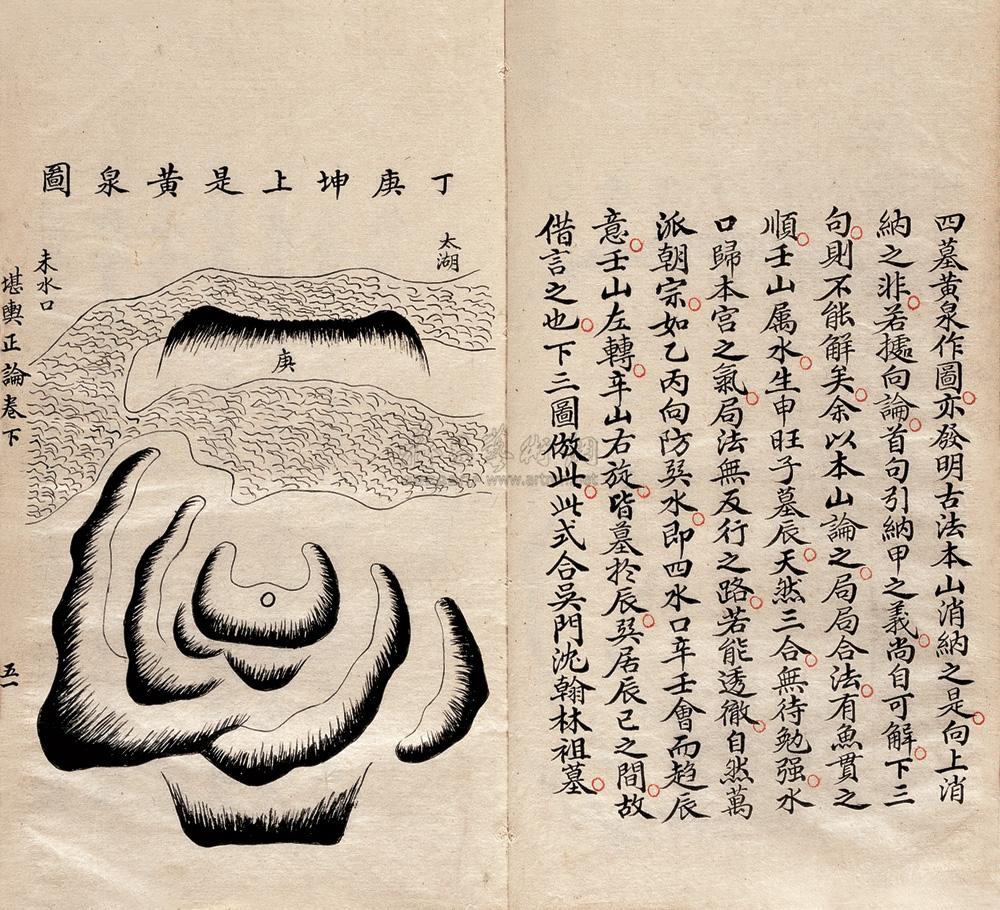 四墓黃泉作圖亦發明古法本山消納之是向上消
納之非若據向論首句引納甲之義尚自可解下三
句則不能解矣余以本山論之局局合法有魚貫之
順壬山属水生申旺子墓辰天然三合無待勉强水
口歸本宮之氣局法無反行之路若能透徹自然萬
派朝宗如乙丙向防巽水即四水口辛壬會而趋辰
意壬山左轉辛山右旋皆墓於辰巽居辰巳之間故
借言之也下三圖倣此此式合吳門沈翰林祖墓
丁庚坤上是黃泉圖
太湖
庚
未水口
堪輿正論卷下
五一